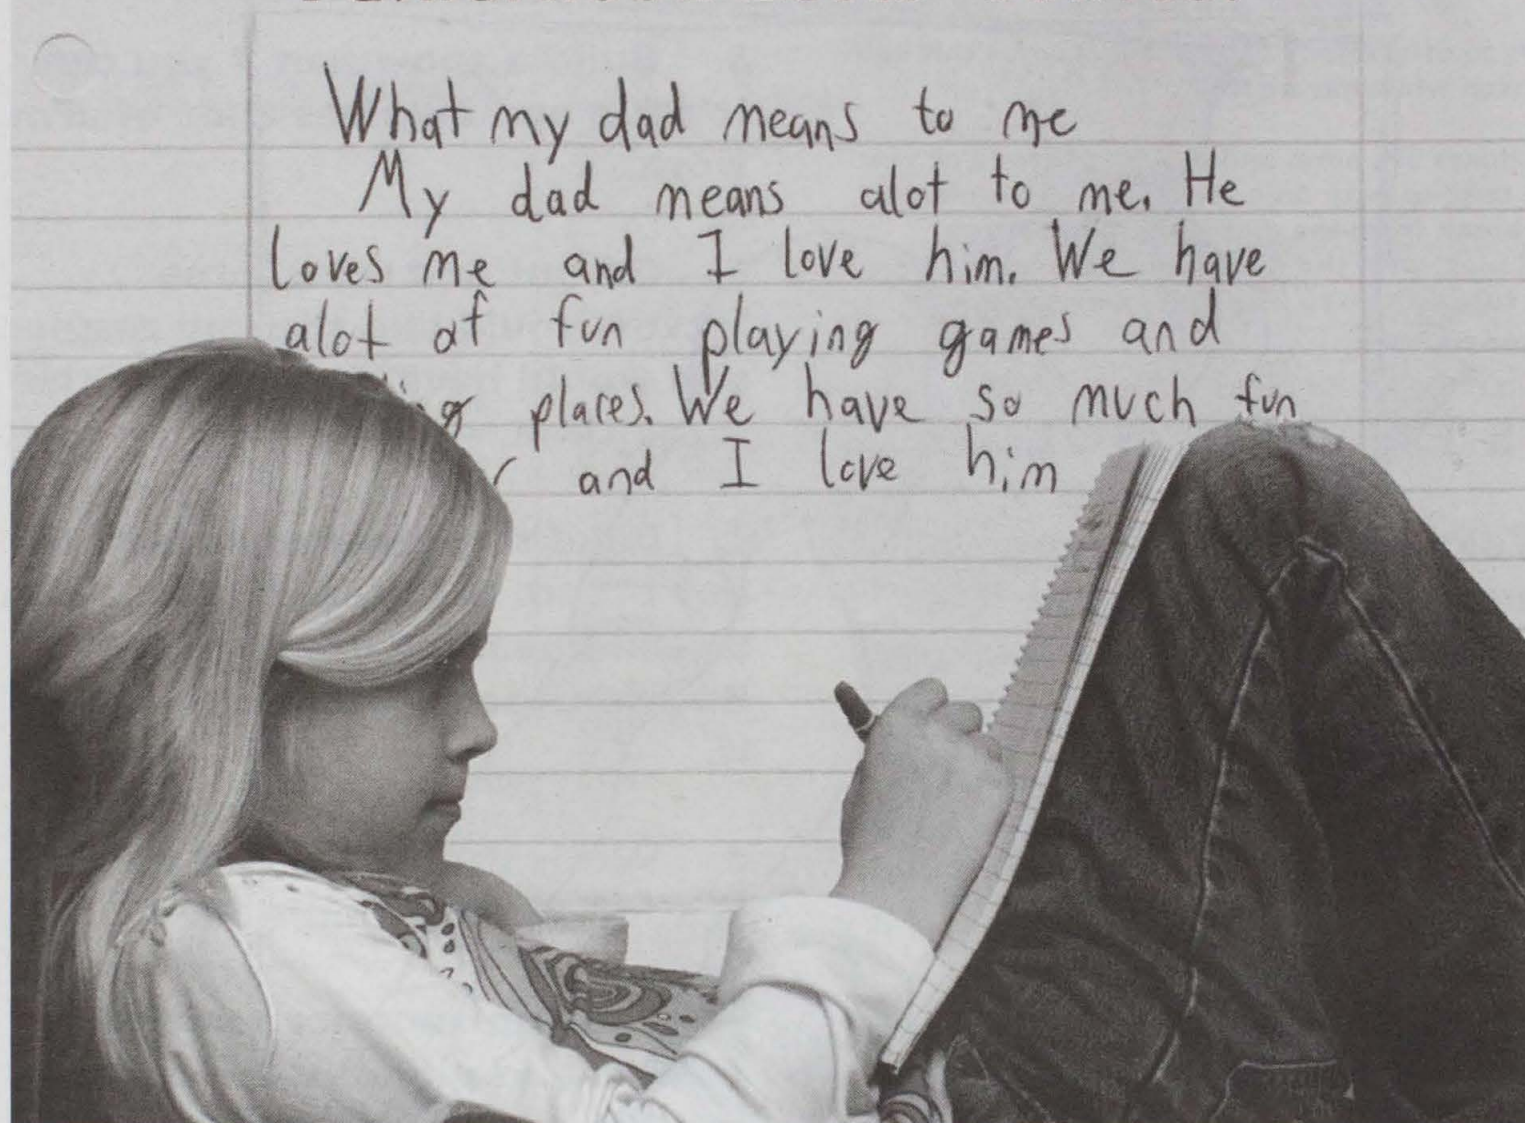 What my dad means to me
My dad means alot to me. He
loves me and I love him. We have
alot of fun playing games and
places. We have so much fun
and I love him